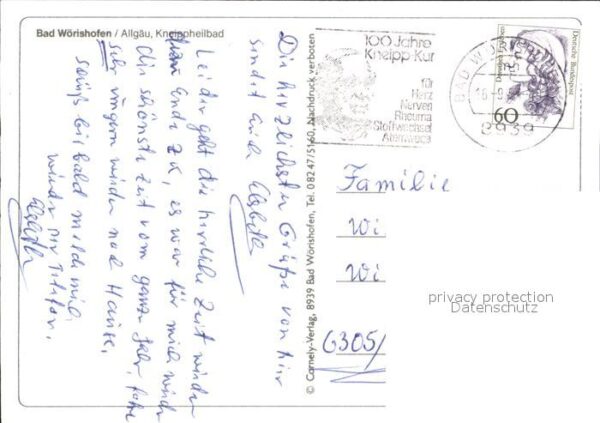 Bad Wörishofen / Allgäu, Kneippheilbad
Die herzlichsten Grüße von hier
sendet Euch
Leider geht die herrliche Zeit wieder
dem Ende zu, es war für mich wieder
die schönste Zeit vom ganzen Jahr, fahre
sehr ungern wieder nach Hause.
bis bald melde mich
wieder per Telefon.
© Cornely-Verlag, 8939 Bad Wörishofen, Tel. 08247/5160, Nachdruck verboten
100 Jahre
Kneipp-Kur
für
Herz
Nerven
Rheuma
Stoffwechsel
Atemwege
BAD W
8939
Deutsche Bundespost
60
Familie
Wi
Wi
6305/
privacy protection
Datenschutz